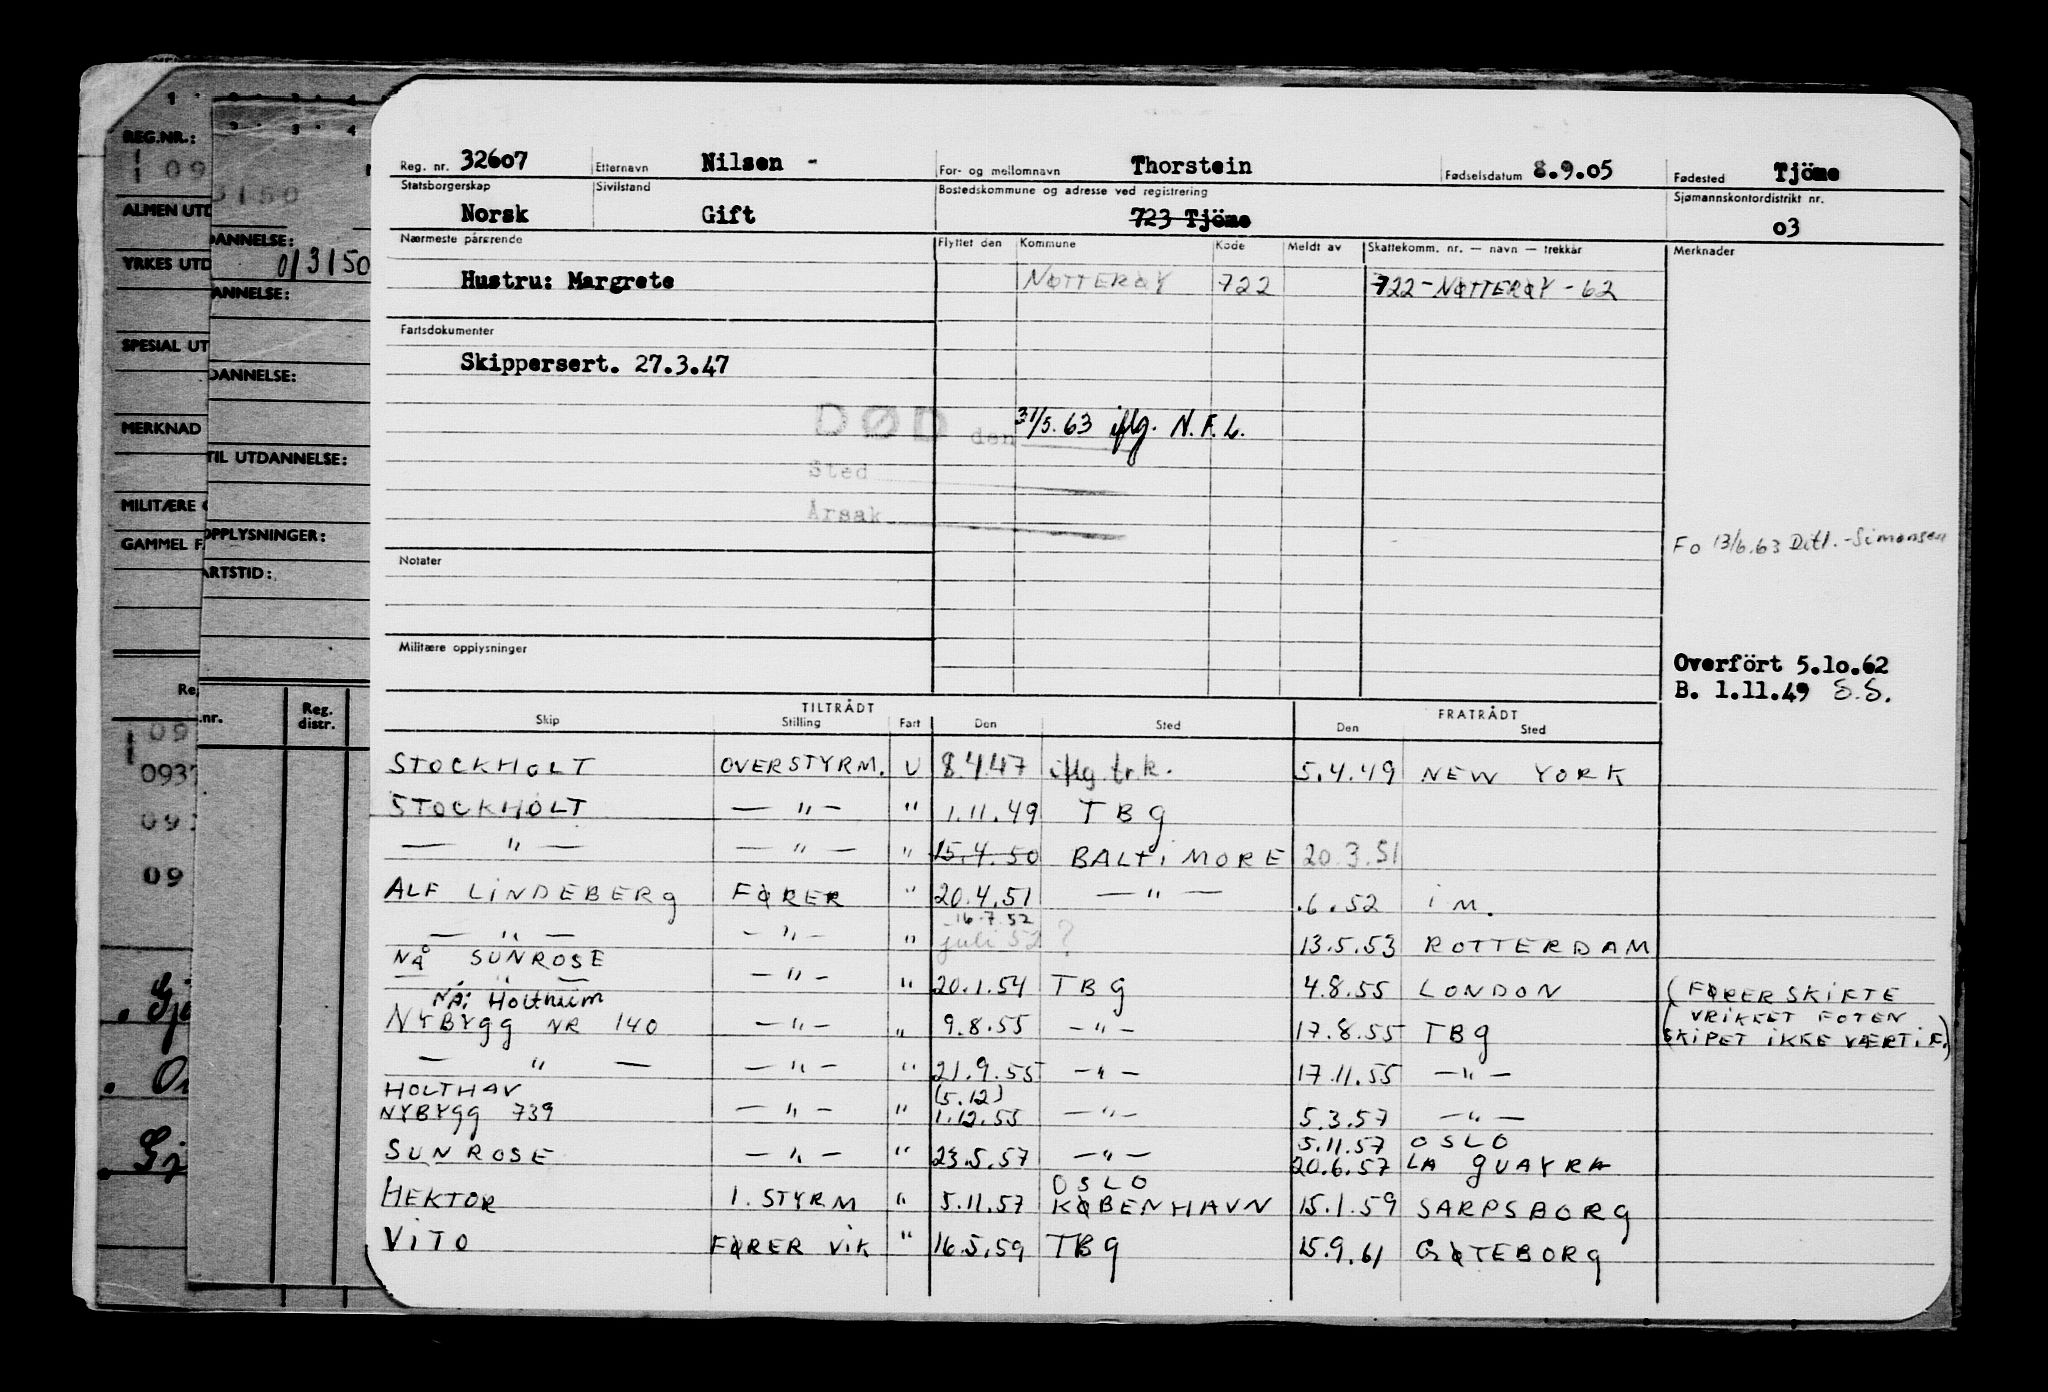 Reg. nr. 32607 Etternavn Nilsen - For- og mellomnavn Thorstein Fødselsdatum 8.9.05 Fødested Tjöme
Statsborgerskap Sivilstand Bostedskommune og adresse ved registrering Sjømannskontordistrikt nr.
Norsk Gift 723 Tjöme 03
Nærmeste pårørende Flyttet den Kommune Kode Meldt av Skattekomm. nr. — navn — trekkår Merknader
Hustru: Margrete NØTTERØY 722 722-NØTTERØY-62
Fartsdokumenter
Skippersert. 27.3.47
DØD den 31/5.63 iflg. N.F.L.
Sted
Årsak
Fo 13/6.63 Ditl.-Simonsen
Notater
Militære opplysninger
Overfört 5.10.62
B. 1.11.49 S.S.
TILTRÅDT FRATRÅDT
Skip Stilling Fart Den Sted Den Sted
STOCKHOLT OVERSTYRM. U 8.4.47 iflg. trk. 5.4.49 NEW YORK
STOCKHOLT — " — " 1.11.49 TBG
— " — — " — " 15.4.50 BALTIMORE 20.3.51
ALF LINDEBERG FØRER " 20.4.51 — " — .6.52 i M.
16.7.52
— " — — " — " juli 52 ? 13.5.53 ROTTERDAM
NÅ SUNROSE
— " — — " — " 20.1.54 TBG 4.8.55 LONDON (FØRERSKIFTE
NÅ: Holthum (VRIKKET FOTEN
NYBYGG NR 140 — " — " 9.8.55 — " — 17.8.55 TBG SKIPET IKKE VÆRT i F.)
— " — — " — " 21.9.55 — " — 17.11.55 — " —
HOLTHAV (5.12)
NYBYGG 739 — " — " 1.12.55 — " — 5.3.57 — " —
5.11.57 OSLO
SUNROSE — " — " 23.5.57 — " — 20.6.57 LA GUAYRA
OSLO
HEKTOR 1. STYRM " 5.11.57 KØBENHAVN 15.1.59 SARPSBORG
VITO FØRER VIK " 16.5.59 TBG 15.9.61 GØTEBORG
REG.NR.:
ALMEN UTD
DANNELSE:
YRKES UTD
013150
ANNELSE:
SPESIAL UT
DANNELSE:
MERKNAD
TIL UTDANNELSE:
MILITÆRE
OPPLYSNINGER:
GAMMEL F
ARTSTID:
Reg.
distr.
.nr.